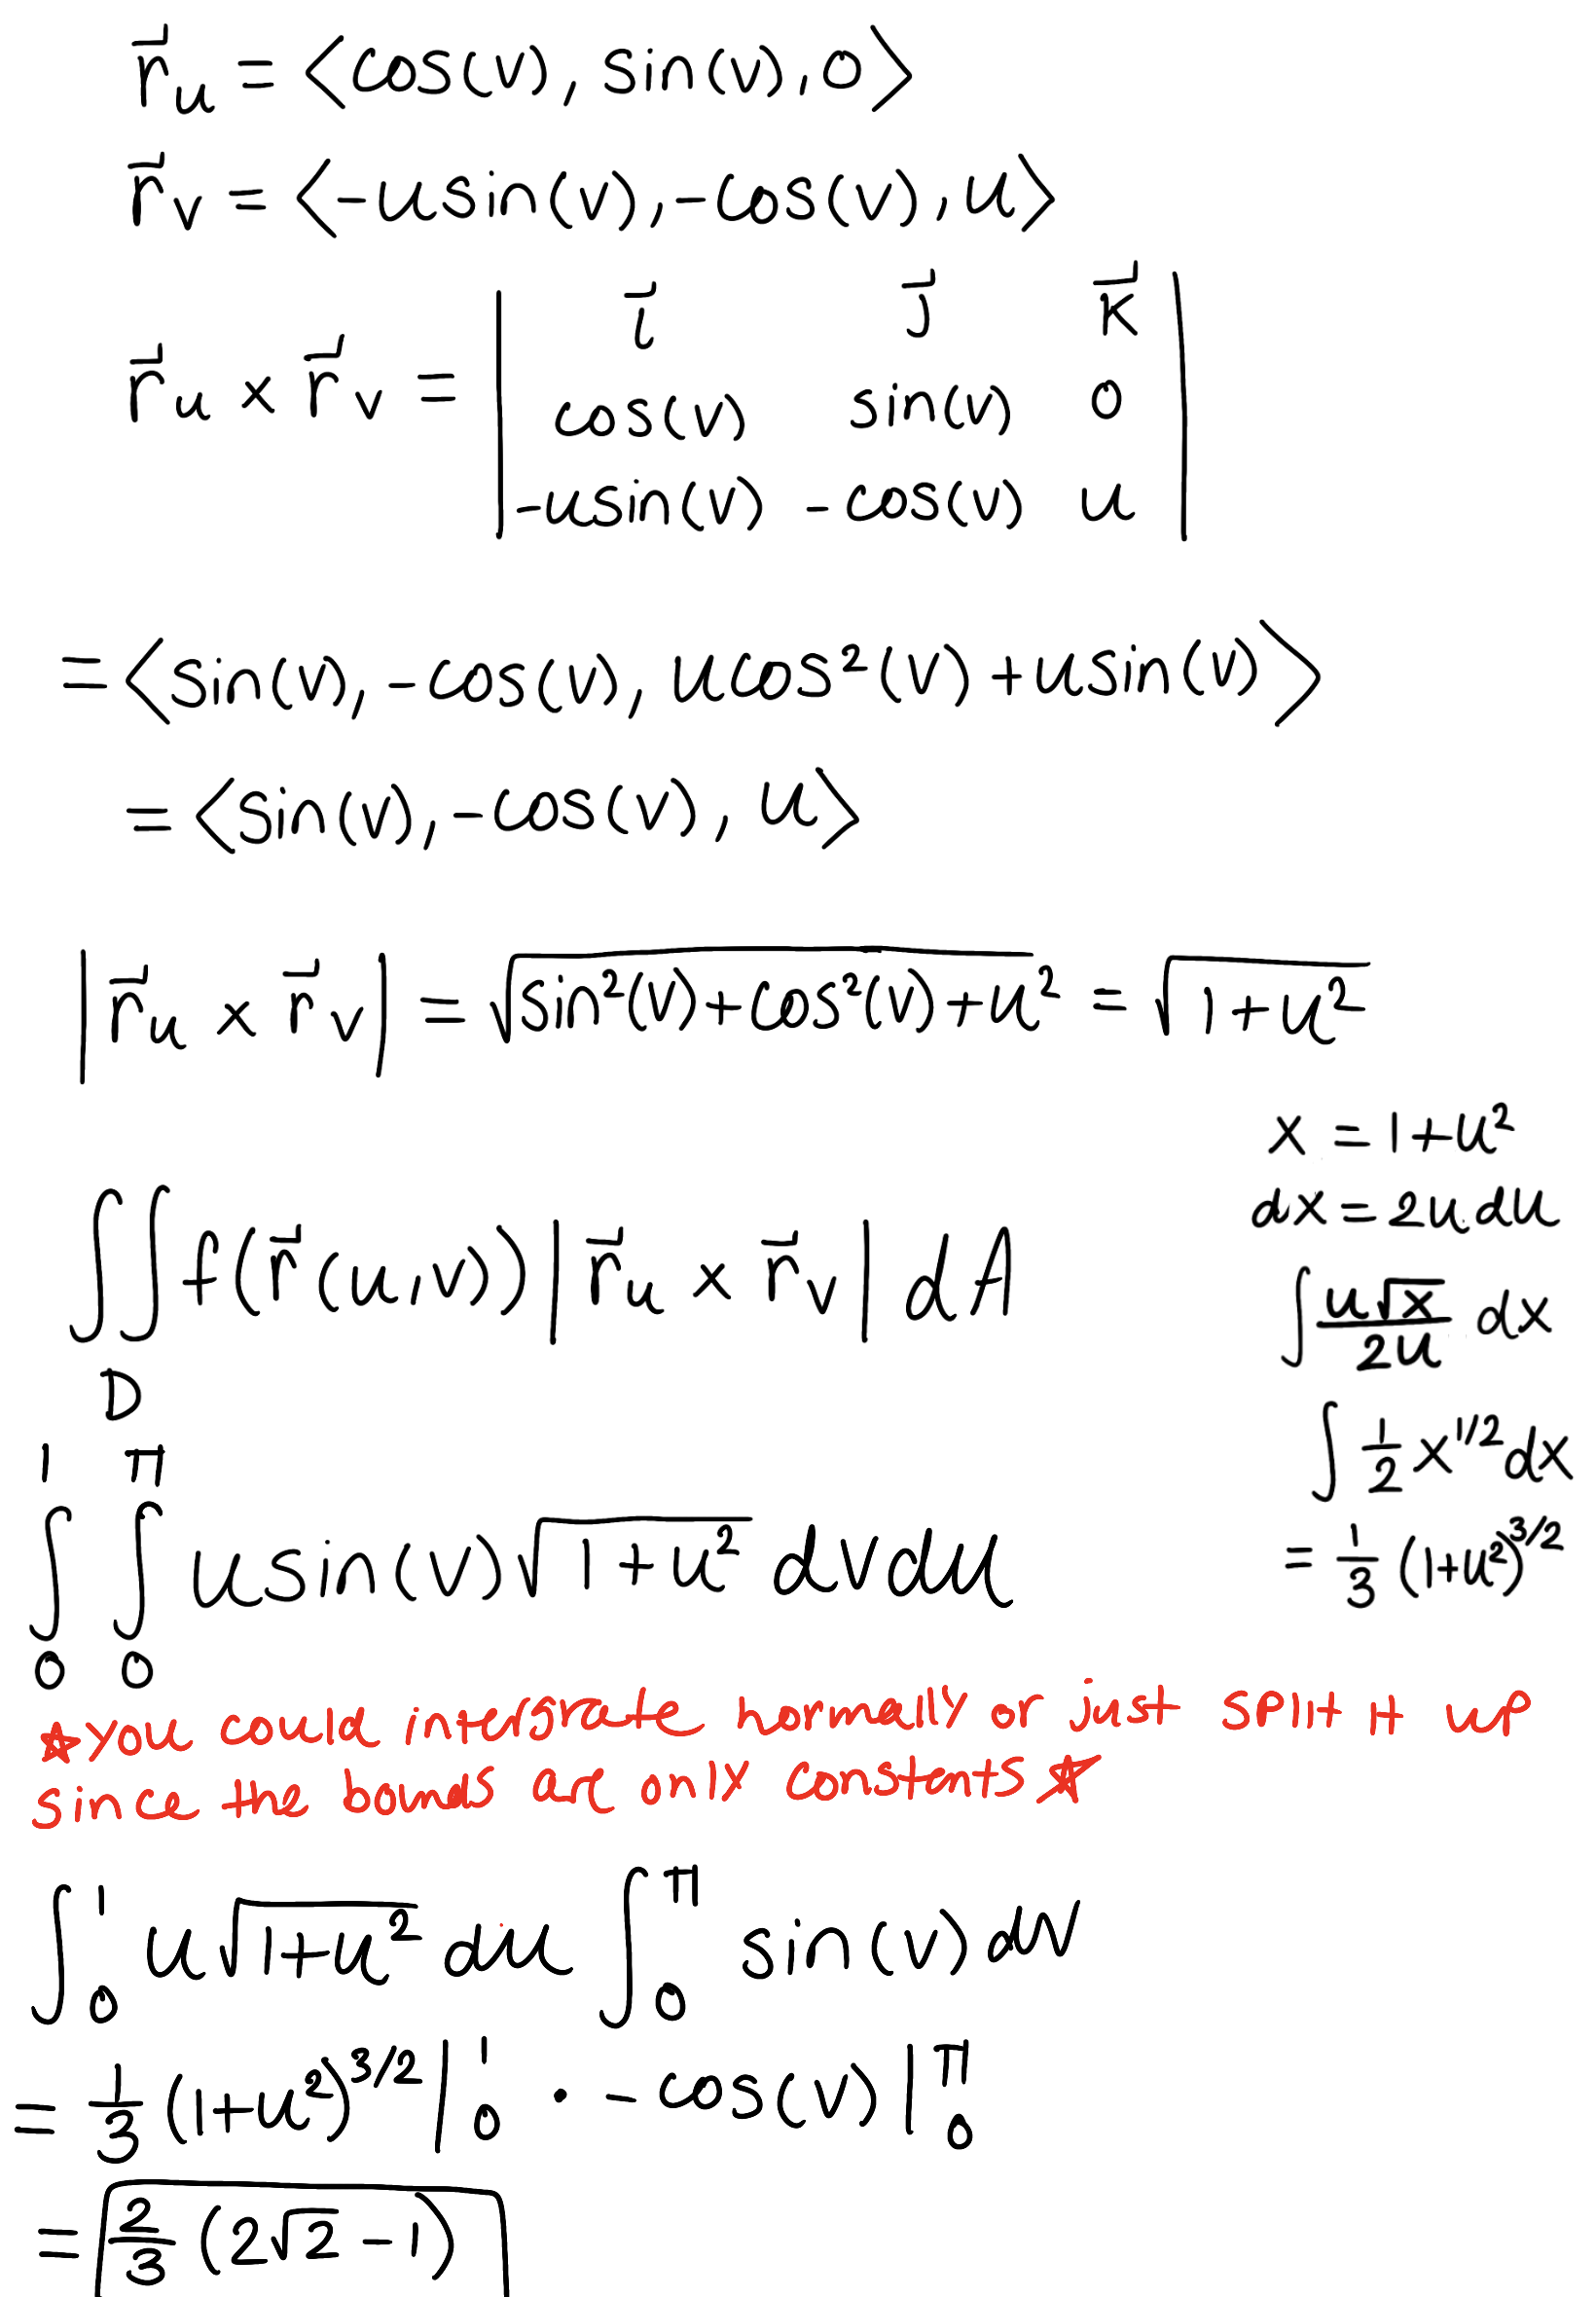 r⃗u = <cos(v), sin(v), 0>
r⃗v = <-usin(v), -cos(v), u>
r⃗u x r⃗v = | i⃗ j⃗ k⃗ |
| cos(v) sin(v) 0 |
| -usin(v) -cos(v) u |
= <sin(v), -cos(v), ucos²(v) + usin(v)>
= <sin(v), -cos(v), u>
|r⃗u x r⃗v| = √(sin²(v)+cos²(v)+u²) = √(1+u²)
x = 1+u²
dx = 2u du
∫ u√x / 2u dx
∫ 1/2 x^1/2 dx
= 1/3 (1+u²)^3/2
∫∫_D f(r⃗(u,v)) |r⃗u x r⃗v| dA
∫_0^1 ∫_0^π usin(v)√(1+u²) dvdu
☆you could intergrate normally or just split it up
since the bounds are only constants☆
∫_0^1 u√(1+u²) du ∫_0^π sin(v) dv
= 1/3 (1+u²)^3/2 |_0^1 · -cos(v) |_0^π
= 2/3 (2√2 - 1)